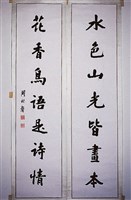 水色山光皆畫本
花香鳥語是詩情